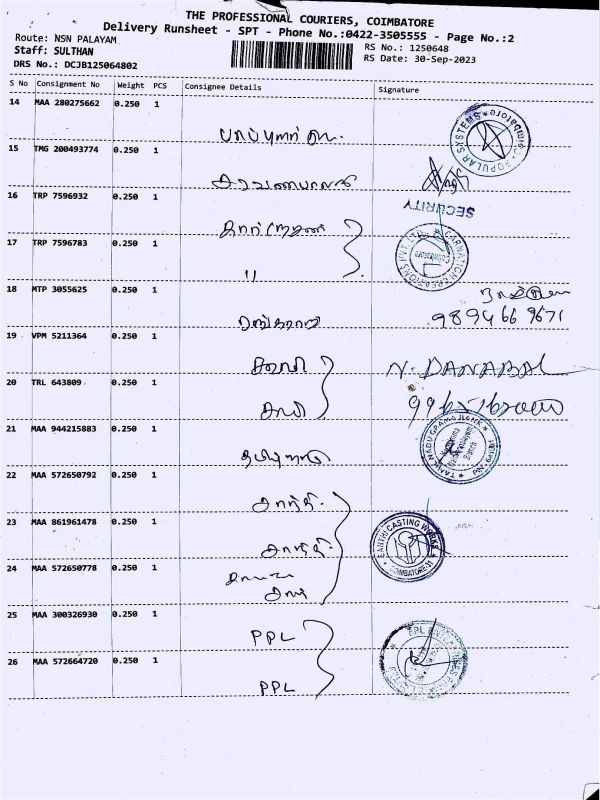 THE PROFESSIONAL COURIERS, COIMBATORE
Delivery Runsheet - SPT - Phone No.:0422-3505555 - Page No.:2
Route: NSN PALAYAM
RS No.: 1250648
Staff: SULTHAN
RS Date: 30-Sep-2023
DRS No.: DCJB125064802
S No Consignment No Weight PCS Consignee Details Signature
14 MAA 280275662 0.250 1
POPULAR SYSTEMS * Coimbatore
15 TMG 200493774 0.250 1
சரவணபாலன்
16 TRP 7596932 0.250 1
SECURITY
17 TRP 7596783 0.250 1
"
18 MTP 3055625 0.250 1
98946 69671
19 VPM 5211364 0.250 1
N. DANABAL
20 TRL 643809 0.250 1
21 MAA 944215883 0.250 1
TAMIL NADU GRAMA BANK
தமிழ்நாடு
22 MAA 572650792 0.250 1
சாந்தி
23 MAA 861961478 0.250 1
SANTHI CASTING WORKS
COIMBATORE-31
சாந்தி
24 MAA 572650778 0.250 1
25 MAA 300326930 0.250 1
PPL
26 MAA 572664720 0.250 1
PPL